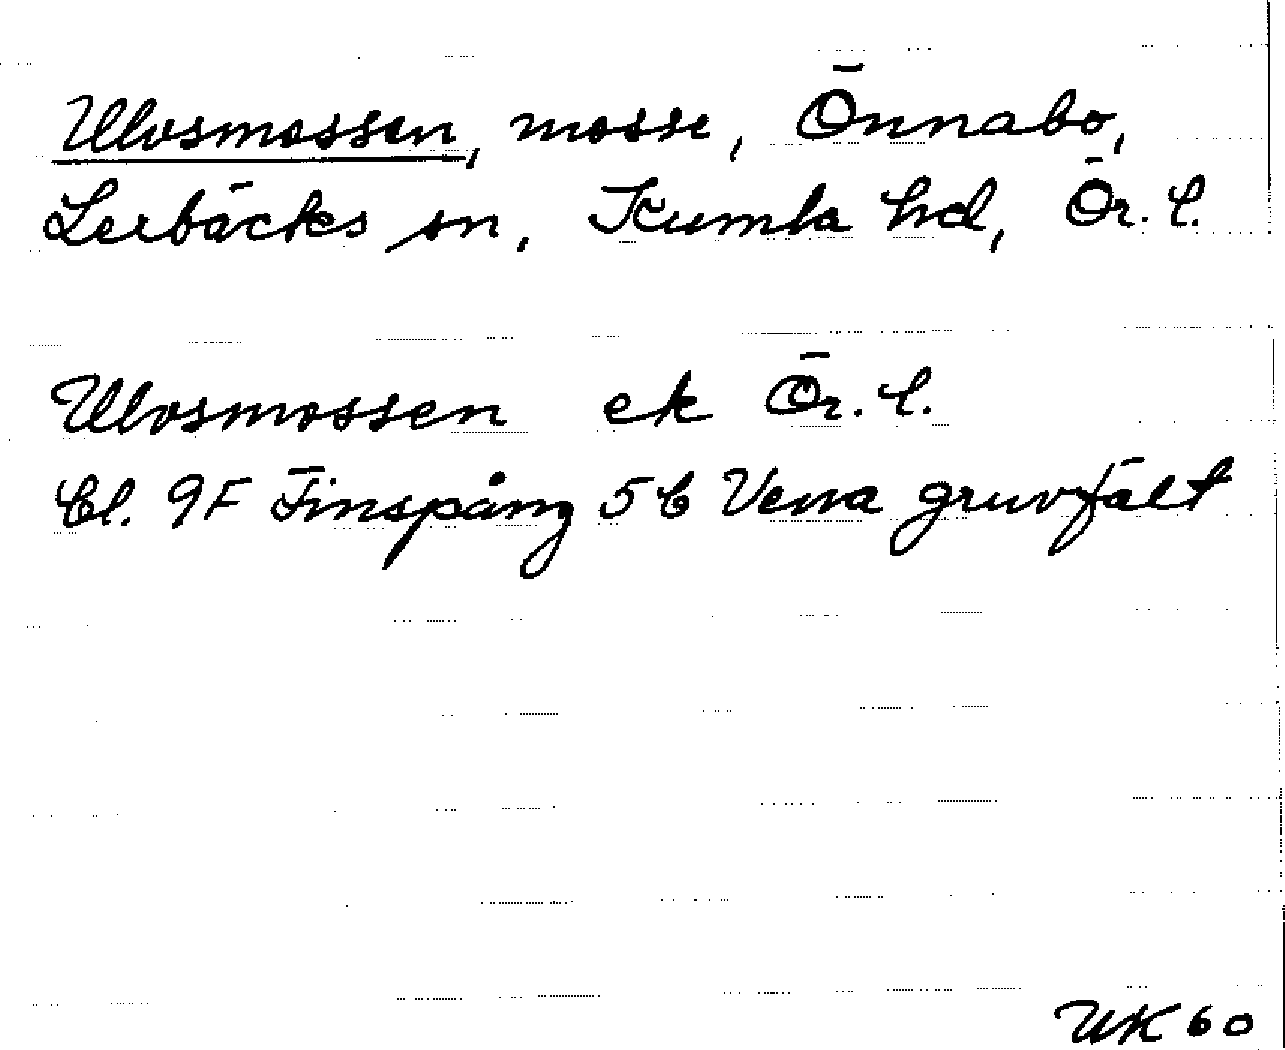 Ulvsmossen, mosse, Önnabo,
Lerbäcks sn, Kumla hd, Ör. l.
Ulvsmossen ek Ör. l.
Bl. 9F Finspång 5b Vena gruvfält
UK 60